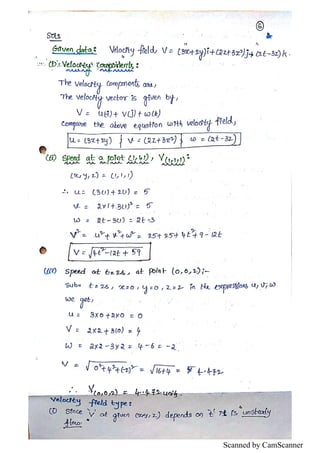 6
Sol:
Given data: Velocity field, V = (3x+2y)i+(2z+3x²)j+(2t-3z)k.
(i) Velocity Components:
The velocity components are,
The velocity vector is given by,
V = u(i) + v(j) + w(k)
Compare the above equation with velocity field,
u = (3x+2y) v = (2z+3x²) w = (2t-3z)
(ii) Speed at a point (1,1,1), V(1,1,1):
(x,y,z) = (1,1,1)
∴ u = (3(1)+2(1) = 5
v = 2x1+3(1)² = 5
w = 2t-3(1) = 2t-3
V² = u²+v²+w² = 25+25+4t²+9-12t
V = √4t²-12t+59
(iii) Speed at t=2s, at point (0,0,2):-
Sub: t=2s, x=0, y=0, z=2 in the expressions u,v,w
we get,
u = 3x0+2x0 = 0
V = 2x2+3(0) = 4
W = 2x2-3x2 = 4-6 = -2
V = √0²+4²+(-2)² = √16+4 = 4.472
∴ V(0,0,2) = 4.472 unit.
Velocity field type:
(i) Since 'V' at given (x,y,z) depends on 't' it is unsteady
flow.
Scanned by CamScanner